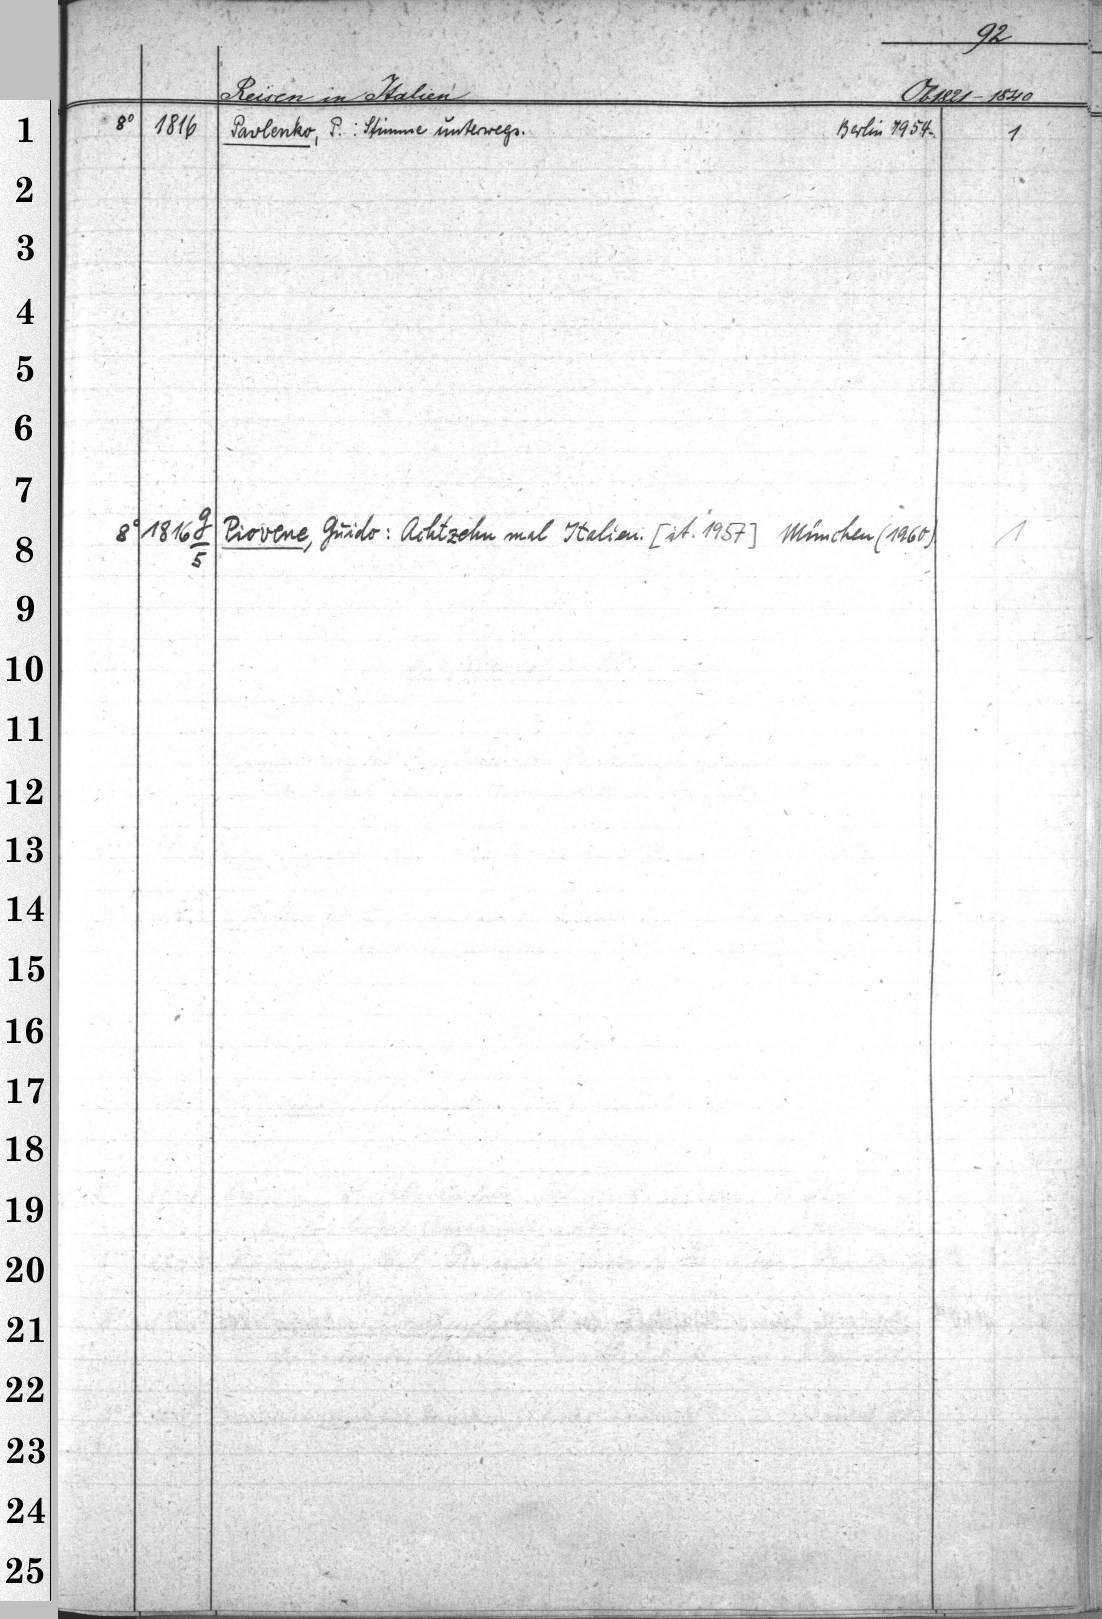 92
Reisen in Italien Ob 1821 - 1840
1 8° 1816 Pavlenko, P.: Stimme unterwegs. Berlin 1954. 1
2
3
4
5
6
7
8 8° 1816 g/5 Piovene, Guido: Achtzehn mal Italien. [it. 1957] München (1960) 1
9
10
11
12
13
14
15
16
17
18
19
20
21
22
23
24
25